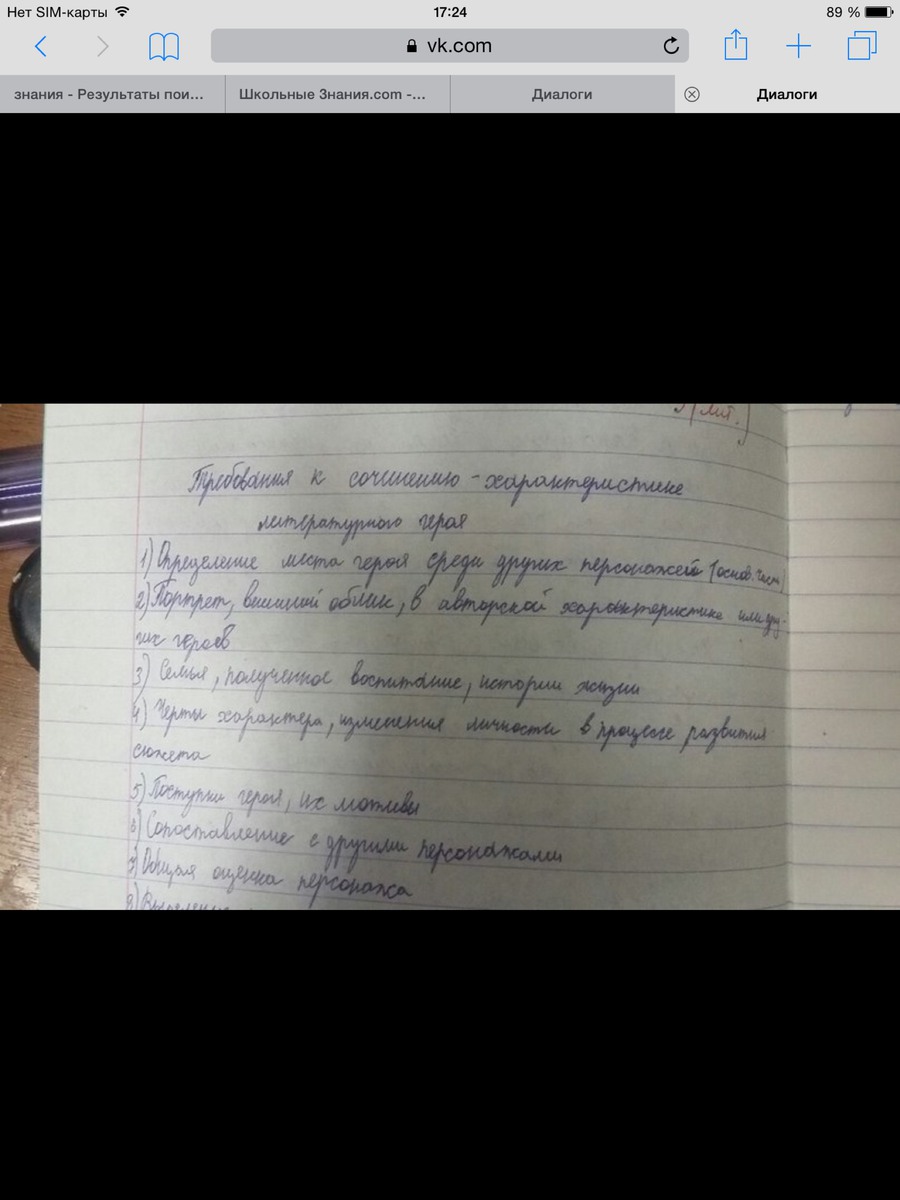 Нет SIM-карты 17:24 89 %
vk.com
знания - Результаты пои... Школьные Знания.com -... Диалоги Диалоги
лит.)
Требования к сочинению - характеристике
литературного героя
1) Определение места героя среди других персонажей (основ. часть)
2) Портрет, внешний облик, в авторской характеристике или дру-
гих героев
3) Семья, полученное воспитание, истории жизни
4) Черты характера, изменения личности в процессе развития
сюжета
5) Поступки героя, их мотивы
6) Сопоставление с другими персонажами
7) Общая оценка персонажа
8)